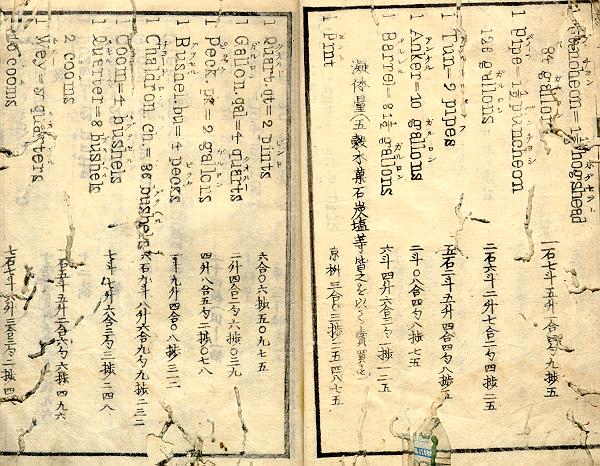 1 Puncheon=1⅓ hogshead
84 gallons 一石七斗五升一合四勺九撮五
1 pipe=1½ puncheon
126 gallons 二石六斗二升七合二勺四撮二五
1 Tun=2 pipes 五石二斗五升四合四勺八撮五
1 Anker=10 gallons 二斗〇八合四勺八撮七五
1 Barrel=31½ gallons 六斗四升六合三勺一撮一二五
量(五穀木菓石炭塩等皆之を以て賣買
1 Pint 京桝 三合〇三撮二五四八七五
1 Quart.qt=2 pints 六合〇六撮五〇九七五
1 Gallon.gal=4 quarts 二升四合二勺六撮〇三九
1 peck.pk=2 gallons 四升八合五勺二撮〇七八
1 Bushel.bu=4 pecks 一斗九升四合〇八撮三一二
1 Chaldron.Ch.=36 bushels 六石九斗八升六合九勺九撮二三二
1 Coom=4 bushels 七斗七升六合三勺三撮二四八
1 Quarter=8 bushels
2 cooms 一石五斗五升二合六勺六撮四九六
1 Wey=5 quarters
10 cooms 七石七斗六升三合三勺二撮四八